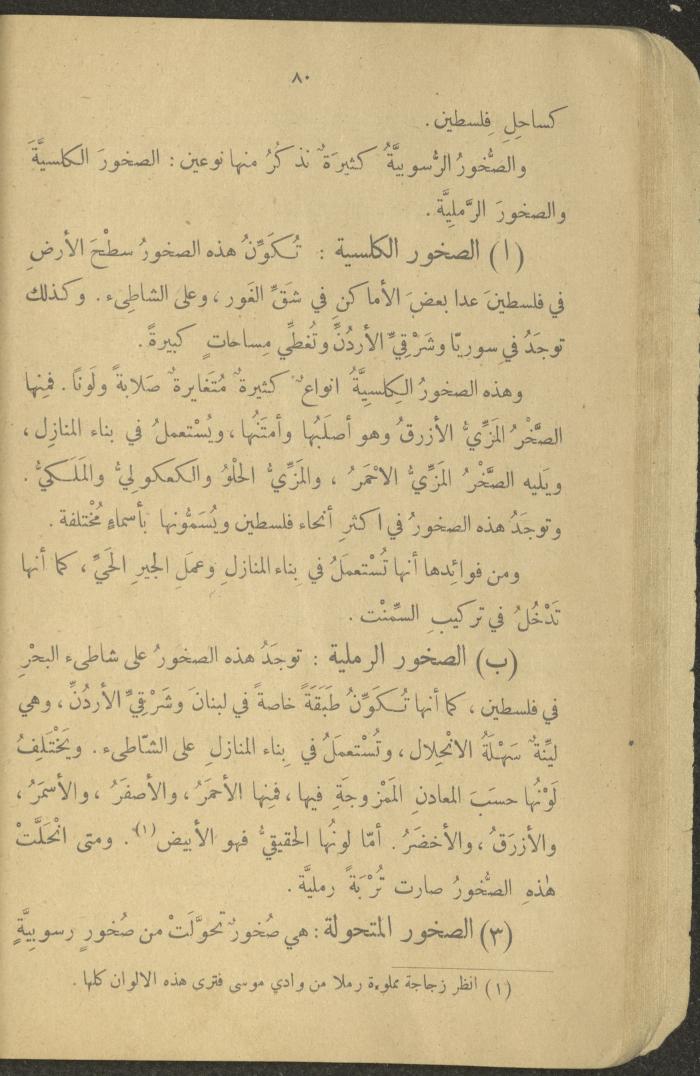 ٨٠
كساحلِ فِلسطين .
والصُّخورُ الرُّسوبيَّةُ كثيرَةٌ نذكُرُ منها نوعين : الصخورَ الكلسيَّةَ
والصخورَ الرَّمليَّة .
(ا) الصخور الكلسية : تُكَوِّنُ هذه الصخورُ سطْحَ الأرضِ
في فلسطينَ عدا بعضَ الأماكنِ في شَقِّ الغَور ، وعلى الشاطِىء . وكذلك
توجَدُ في سوريّا وشَرْقِيِّ الأردُنِّ وتُغطِّي مِساحاتٍ كبيرةً .
وهذه الصخورُ الكِلسِيَّةُ انواعٌ كثيرةٌ مُتَغايرةٌ صَلابةً ولَوناً . فمِنها
الصَّخْرُ المَزِّيُّ الأزرقُ وهو أصلَبُها وأمتَنُها ، ويُسْتعملُ في بناء المنازِل ،
ويَليه الصَّخْرُ المَزِّيُّ الاحْمَرُ ، والمَزِّيُّ الحلْوُ والكعكوليُّ والمَلَكيُّ .
وتوجَدُ هذه الصخورُ في اكثرِ أنحاء فلسطين ويُسَمُّونها بأسماءٍ مُخْتلفة .
ومن فوائِدها أنها تُسْتعمَلُ في بِناء المنازلِ وعملِ الجيرِ الحَيِّ ، كما أنها
تَدْخُلُ في تركيبِ السِّمَنْت .
(ب) الصخور الرملية : توجَدُ هذه الصخورُ على شاطىء البحْرِ
في فلسطين ، كما أنها تُكَوِّنُ طَبَقَةً خاصةً في لبنانَ وشَرْقيِّ الأردُنِّ ، وهي
ليِّنةٌ سَهْلَةُ الانْحِلال ، وتُسْتعمَلُ في بِناء المنازلِ على الشّاطىء . ويَخْتَلِفُ
لَوْنُها حسَبَ المعادنِ المَمْزوجَةِ فيها ، فمِنها الأحمَرُ ، والأصفَرُ ، والأسمَرُ ،
والأزرَقُ ، والأخضَرُ . أمّا لونُها الحقيقيُّ فهو الأبيض(١) . ومتى انْحَلَّتْ
هٰذهِ الصُّخورُ صارت تُرْبَةً رمليَّة .
(٣) الصخور المتحولة : هي صُخورٌ تحوَّلَتْ من صُخورٍ رسوبيَّةٍ
(١) انظر زجاجة مملوءة رملا من وادي موسى فترى هذه الالوان كلها .